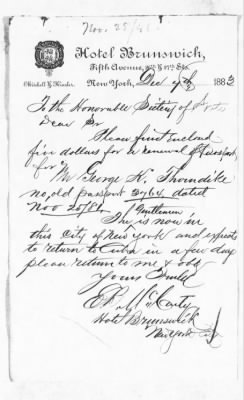 Nov. 25/81
Hotel Brunswick,
Fifth Avenue, 26th & 27th Sts.
Mitchell & Kinzler.
New York, Dec 7th 1883
To the Honorable Sectery of
Dear Sir
Please find Enclosed
five dollars for a renewal of Passport
for Mr George K. Thorndike
no, old passport 3764 dated
Nov 25/81. Gentlemen
The is now in
this City of New York and expects
to return to Cuba in a few days
please return to me & oblg
Yours Truly
E. McCarty
Hotel Brunswick
New York City